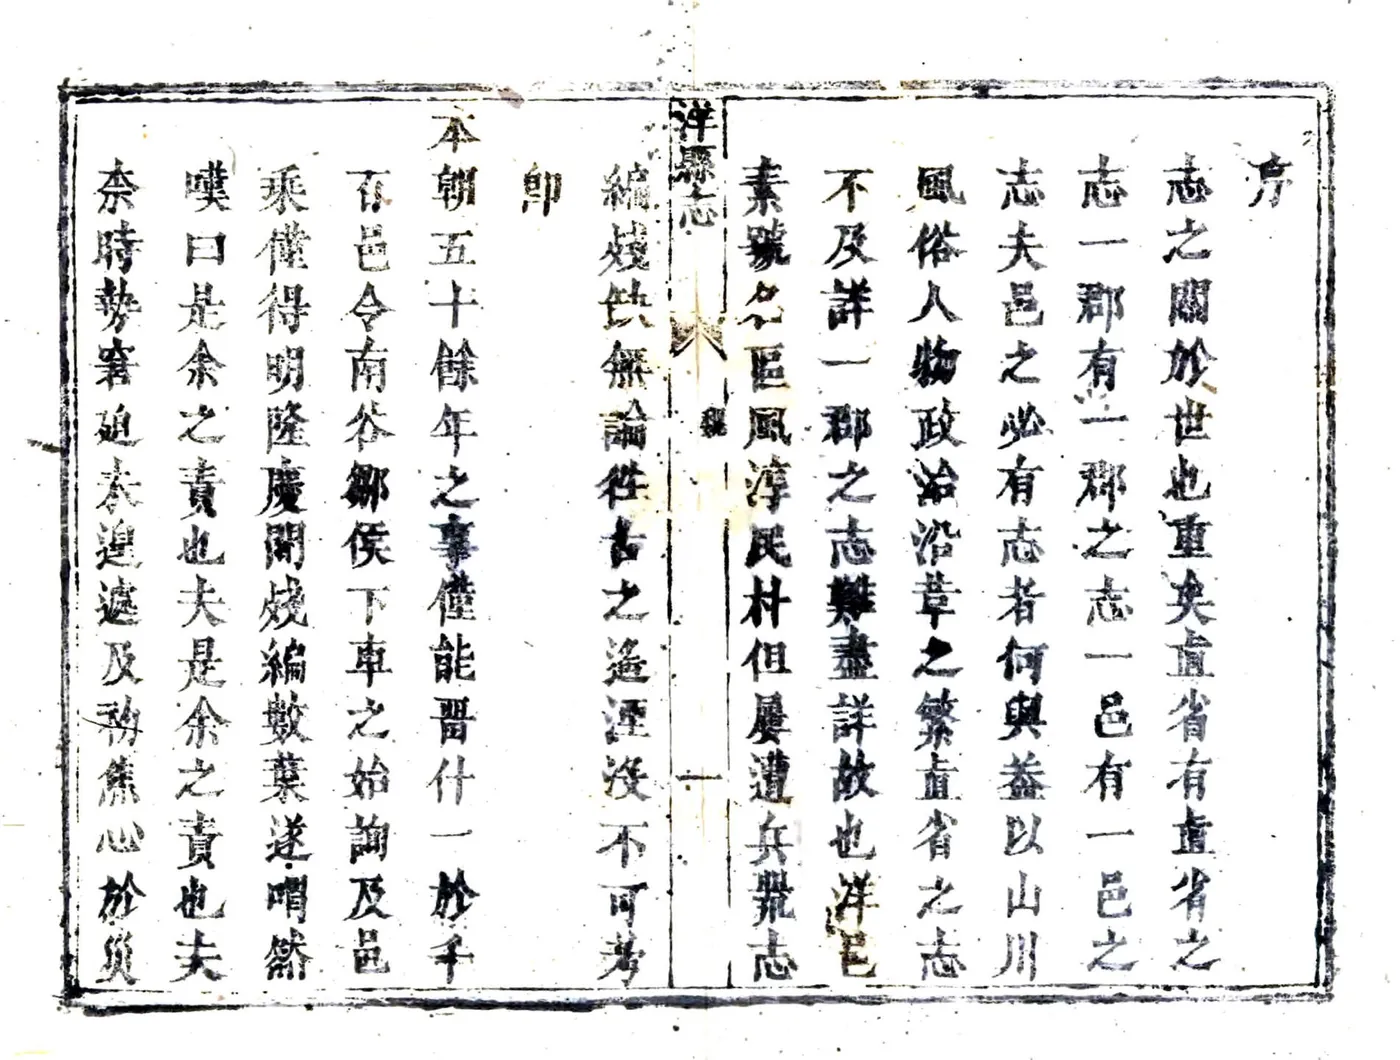 序
志之關於世也重矣直省有直省之
志一郡有一郡之志一邑有一邑之
志夫邑之必有志者何與益以山川
風俗人物政治沿革之繁直省之志
不及詳一郡之志難盡詳故也洋邑
素號名區風淳民朴但屢遭兵燹志
洋縣志
敘
一
編殘缺無論徃古之遙湮沒不可考
卽
本朝五十餘年之事僅能畱什一於千
百邑令南谷鄒侯下車之始詢及邑
乘僅得明隆慶間殘編數葉遂喟然
嘆曰是余之責也夫是余之責也夫
柰時勢窘廹未遑遽及矧焦心於災